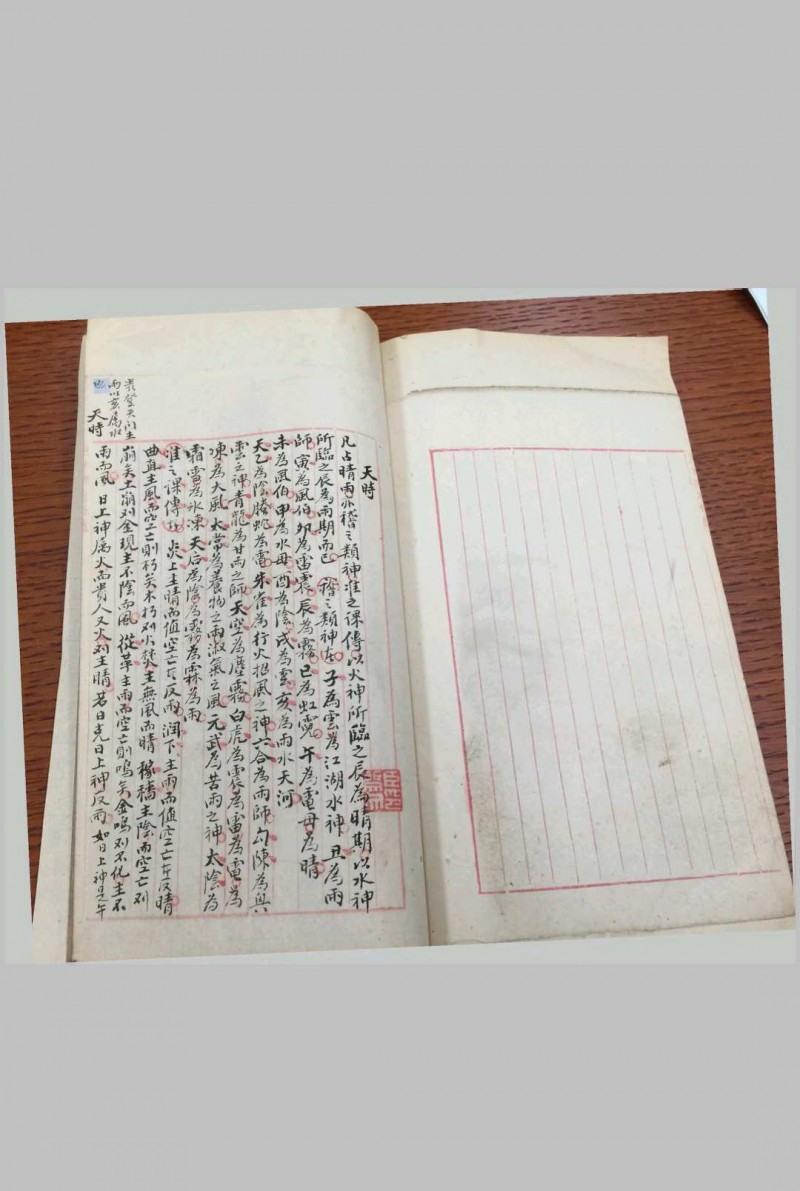 天時
凡占晴雨亦稽之類神准之課傳以火神所臨之辰為晴期以水神
所臨之辰為雨期而已 稽之類神在 子為雲為江湖水神 丑為雨
師 寅為風伯 卯為雷震 辰為霧 巳為虹霓 午為電母為晴
未為風伯 申為水母 酉為陰 戌為雲 亥為雨水天河
天乙為陰 螣蛇為電 朱雀為行火招風之神 六合為雨師 勾陳為興
雲之神 青龍為甘雨之師 天空為塵霧 白虎為震為雷為電為
凍為大風 太常為養物之雨淑氣之風 元武為苦雨之神 太陰為
霜雪為氷凍 天后為陰為霧為霖為雨
准之課傳 炎上主晴而值空亡反雨 潤下主雨而值空亡反晴
曲直主風而空亡則朽矣木朽則火焚主無風而晴 稼穡主陰而空亡則
崩矣土崩則金現主不陰而風 從革主雨而空亡則鳴矣金鳴則不化主不
雨而風 日上神屬火而貴人又火則主晴 若日克日上神反雨 如日上神是午
天時
貴登天門主
雨以亥屬水